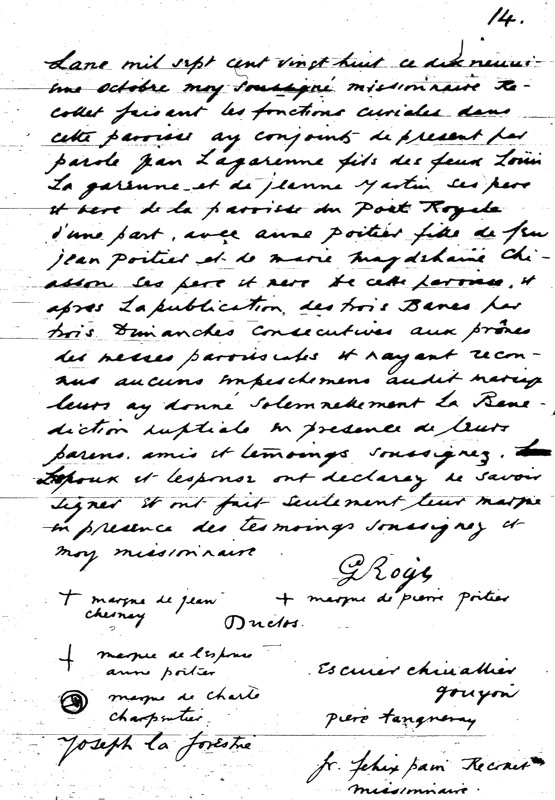 14.
Lane mil sept cent vingt huit ce dix neuvi-
eme octobre moy soussigné missionnaire Re-
collet faisant les fonctions curiales dans
cette paroisse ay conjoints de present par
parole jean Lagarenne fils des feux Loüis
La garenne et de jeanne Martin ses pere
et mere de la paroisse du Port Royale
d'une part, avec anne Poitier fille de feu
jean Poitier et de marie magdelaine Chi-
asson ses pere et mere de cette paroisse, et
apres La publication des trois Banes par
trois Dimanches consecutives aux prônes
des messes paroissiales et nayant recon-
nus aucuns empeschemens audit mariage
leurs ay donné solemnellement La Bene-
diction nuptiale en presence de leurs
parens, amis et témoings soussignez,
Lepoux et lespouse ont declarez ne savoir
signer et ont fait seulement leur marque
en presence des tesmoings soussignez et
moy missionnaire
+ marque de jean chesnay
+ marque de pierre Poitier
Duclos.
+ marque de lespouse
anne poitier
Escuier chivallier
gouyon
marque de charle
charpentier
piere tangueray
Joseph la forestrie
fr. felix pain Recollet
missionnaire.